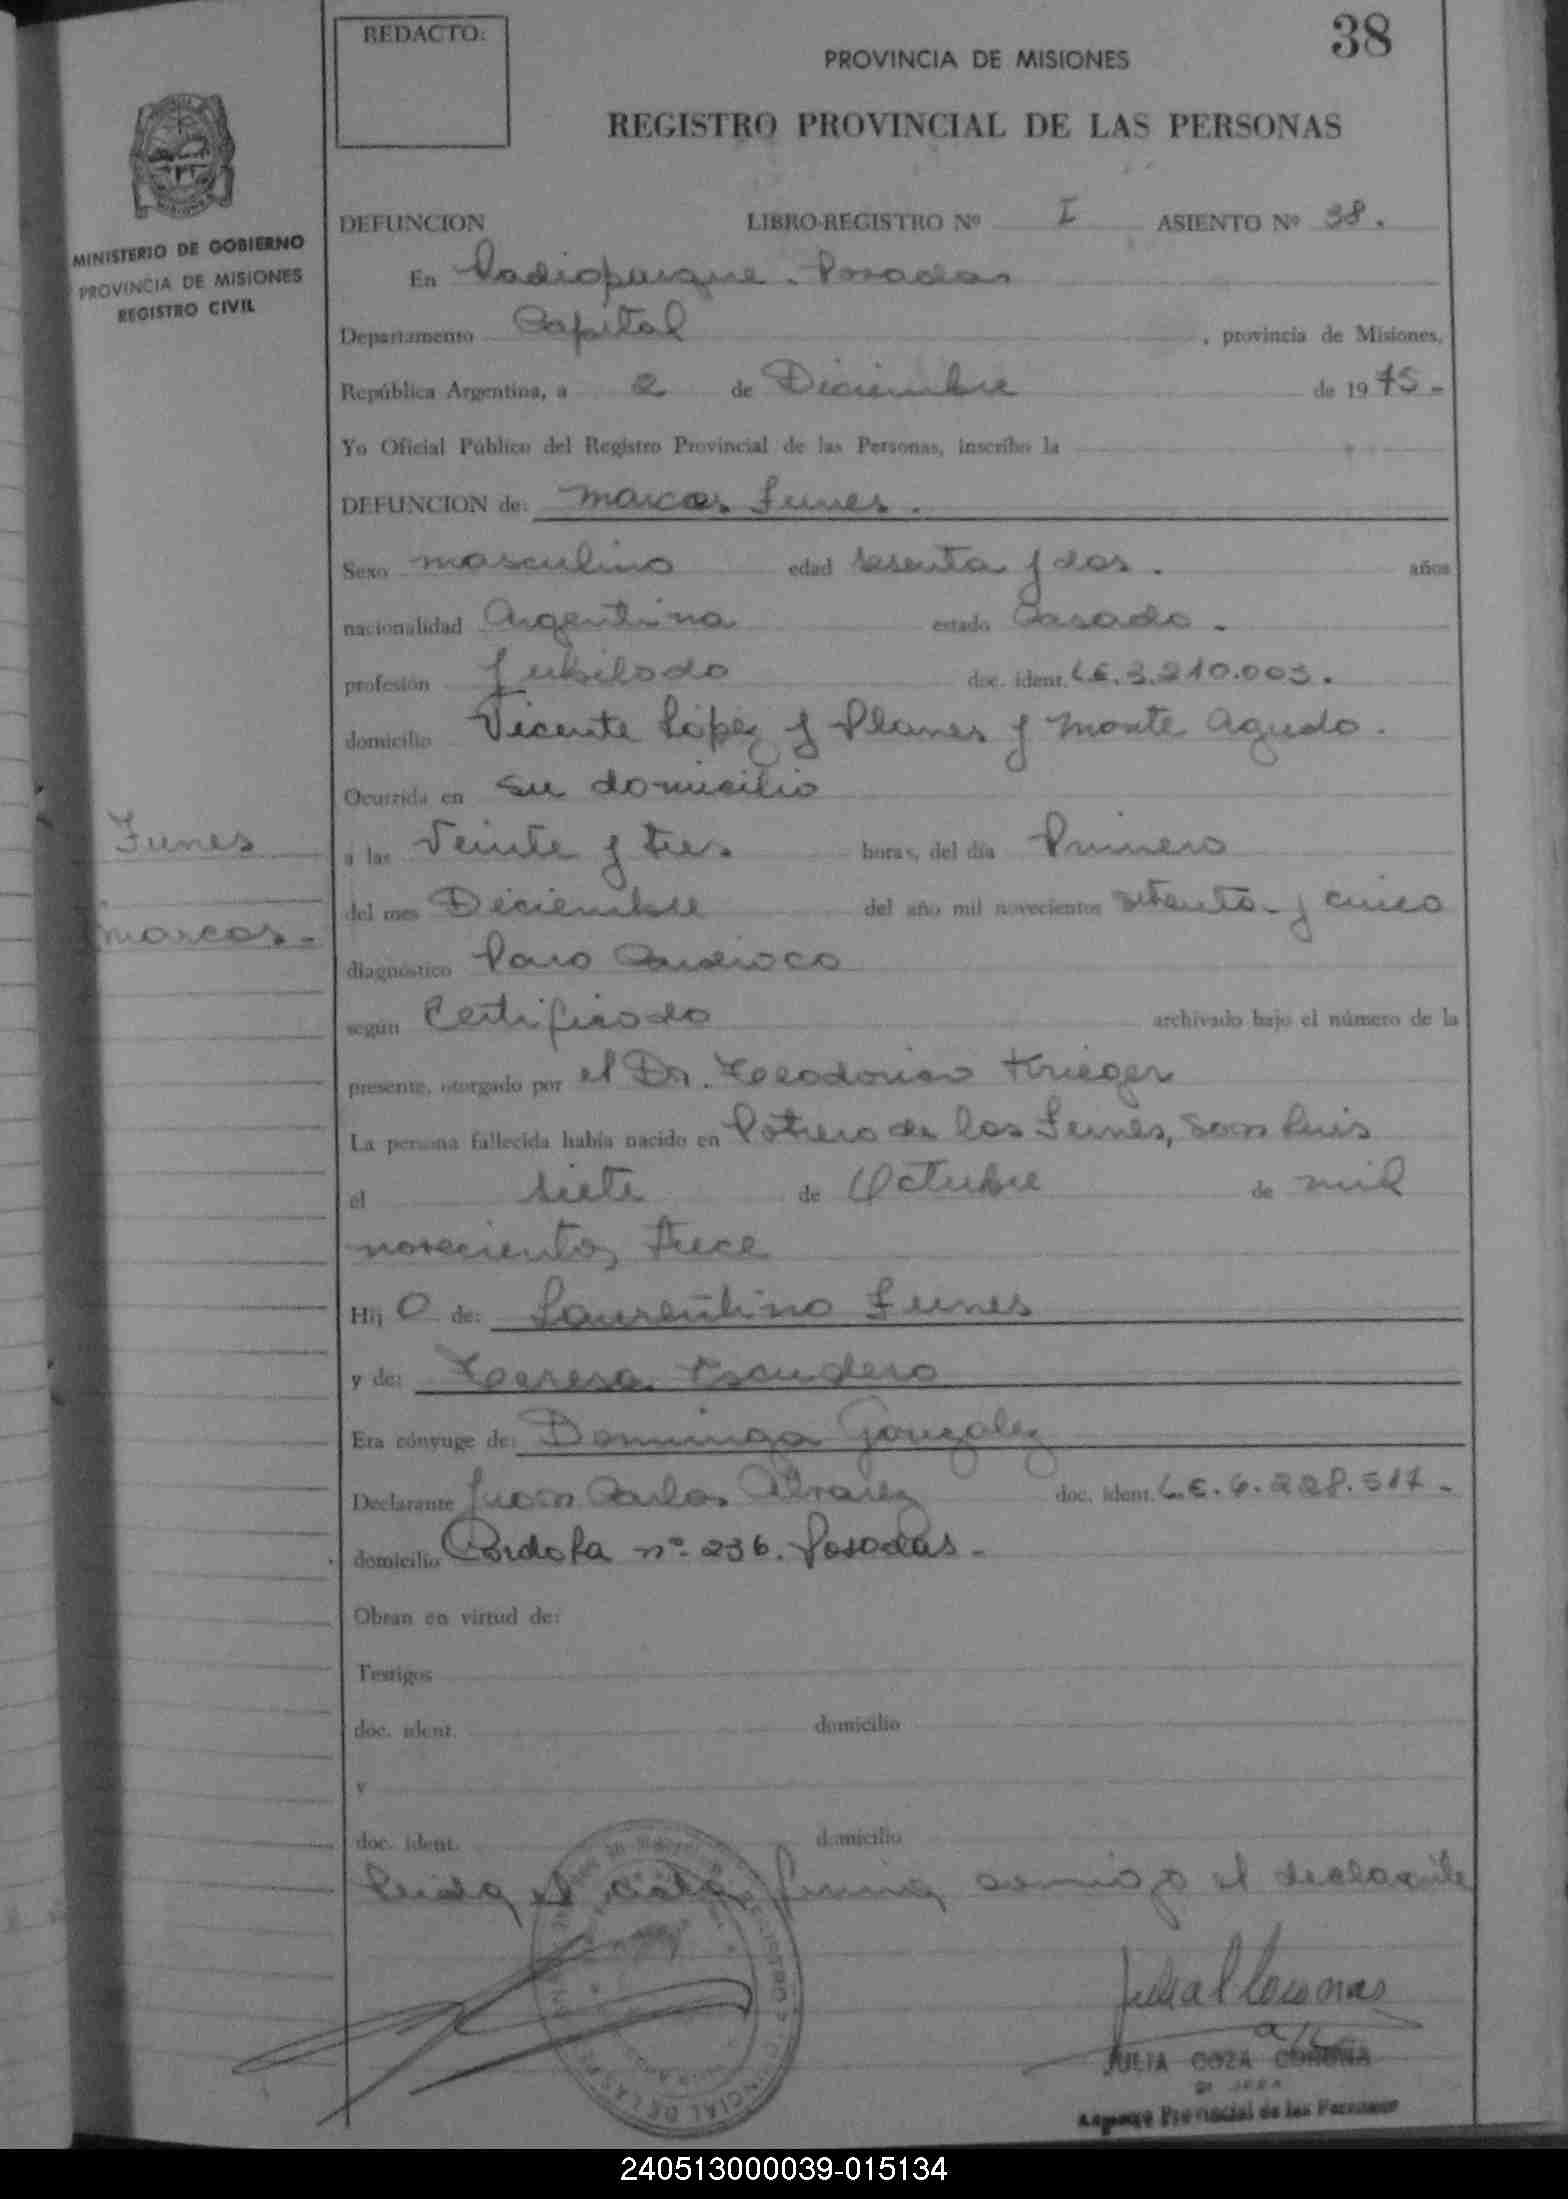 REDACTO:
38
PROVINCIA DE MISIONES
REGISTRO PROVINCIAL DE LAS PERSONAS
MINISTERIO DE GOBIERNO
PROVINCIA DE MISIONES
REGISTRO CIVIL
DEFUNCION LIBRO-REGISTRO Nº I ASIENTO Nº 38.
En Posadas
Departamento Capital, provincia de Misiones,
República Argentina, a 2 de Diciembre de 1975-
Yo Oficial Público del Registro Provincial de las Personas, inscribo la
DEFUNCION de: Marcos Funes.
Sexo masculino edad sesenta y dos. años
nacionalidad Argentina estado Casado.
profesión Jubilado doc. ident. L.E. 3.210.003.
domicilio Vicente López y Planes y Monte Agudo.
Ocurrida en su domicilio
Funes
a las Veinte y tres horas, del día Primero
del mes Diciembre del año mil novecientos setenta y cinco
Marcos-
diagnóstico Paro Cardiaco
según Certificado archivado bajo el número de la
presente, otorgado por el Dr. Teodorico Krieger
La persona fallecida había nacido en Potrero de los Funes, San Luis
el siete de Octubre de mil
novecientos trece
Hij O de: Laurentino Funes
y de: Teresa Escudero
Era cónyuge de: Dominga Gonzalez
Declarante Juan Carlos Alvarez doc. ident. L.E. 6.228.517-
domicilio Cordoba nº 236. Posadas-
Obran en virtud de:
Testigos
doc. ident. domicilio
y
doc. ident. domicilio
Leida el acta, firma conmigo el declarante
a/c
JULIA COZA CORONA
Provincial de las Personas
240513000039-015134